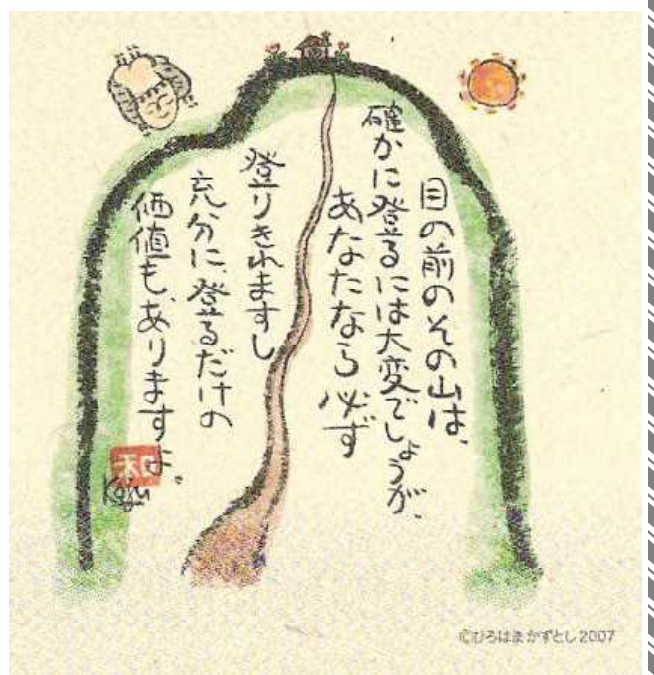 目の前のその山は、
確かに登るには大変でしょうが、
あなたなら必ず
登りきれますし
充分に、登るだけの
価値も、ありますよ。
和
Kazu
©ひろはまかずとし2007